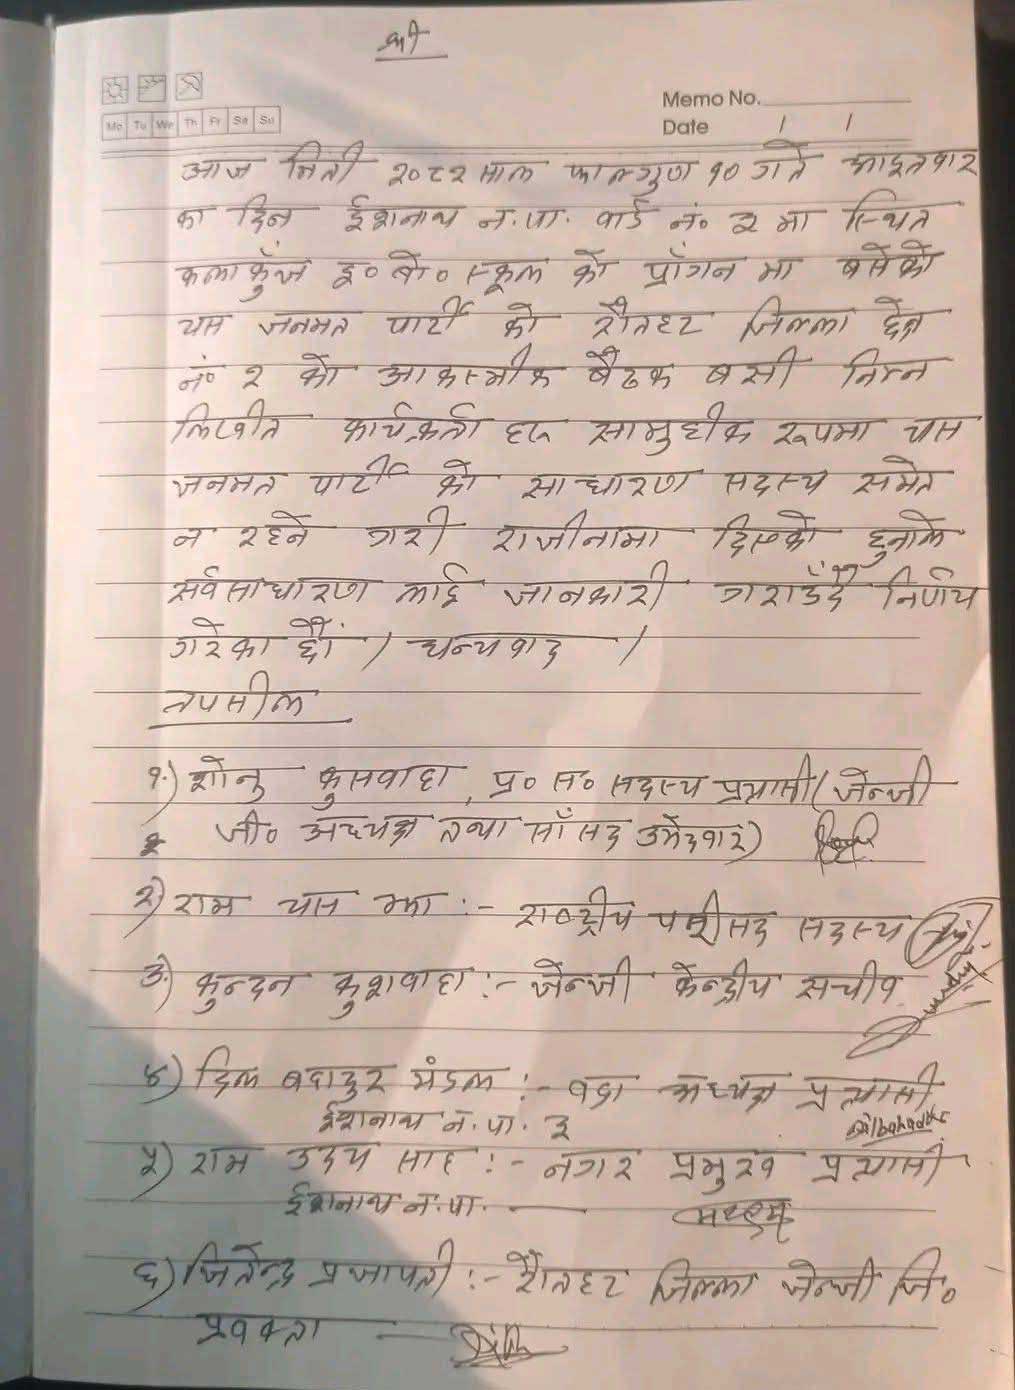 श्री
Memo No.
Mo Tu We Th Fr Sa Su
Date / /
आज मिती २०८२ साल फाल्गुण १० गते आइतवार
का दिन ईशनाथ न.पा. वार्ड नं० ३ मा स्थित
कलाकुँज इ० बो० स्कूल को प्राँगन मा बसेको
यस जनमत पार्टी को रौतहट जिल्ला क्षेत्र
नं० २ को आकस्मीक बैठक बसी निम्न
लिखीत कार्यकर्ता हरू सामुहीक रूपमा यस
जनमत पार्टी को साधारण सदस्य समेत
न रहने गरी राजीनामा दिएको हुनाले
सर्वसाधारण लाई जानकारी गराउँदै निर्णय
गरेका छौं । धन्यवाद ।
तपसील
१.) शोनु कुसवाहा, प्र० स० सदस्य प्रत्यासी (जेन्जी
जी० अध्यक्ष तथा साँसद उमेदवार)
२.) राम यस झा :- राष्ट्रीय परीसद सदस्य
३.) कुन्दन कुशवाहा :- जेन्जी केन्द्रीय सचीव
४) दिल बहादुर मंडल :- वडा अध्यक्ष प्रत्यासी
ईशनाथ न.पा. ३
Dilbahadur
५) राम उदय साह :- नगर प्रमुख प्रत्यासी
ईशनाथ न.पा.
६) जितेन्द्र प्रजापती :- रौतहट जिल्ला जेन्जी जि०
प्रवक्ता —